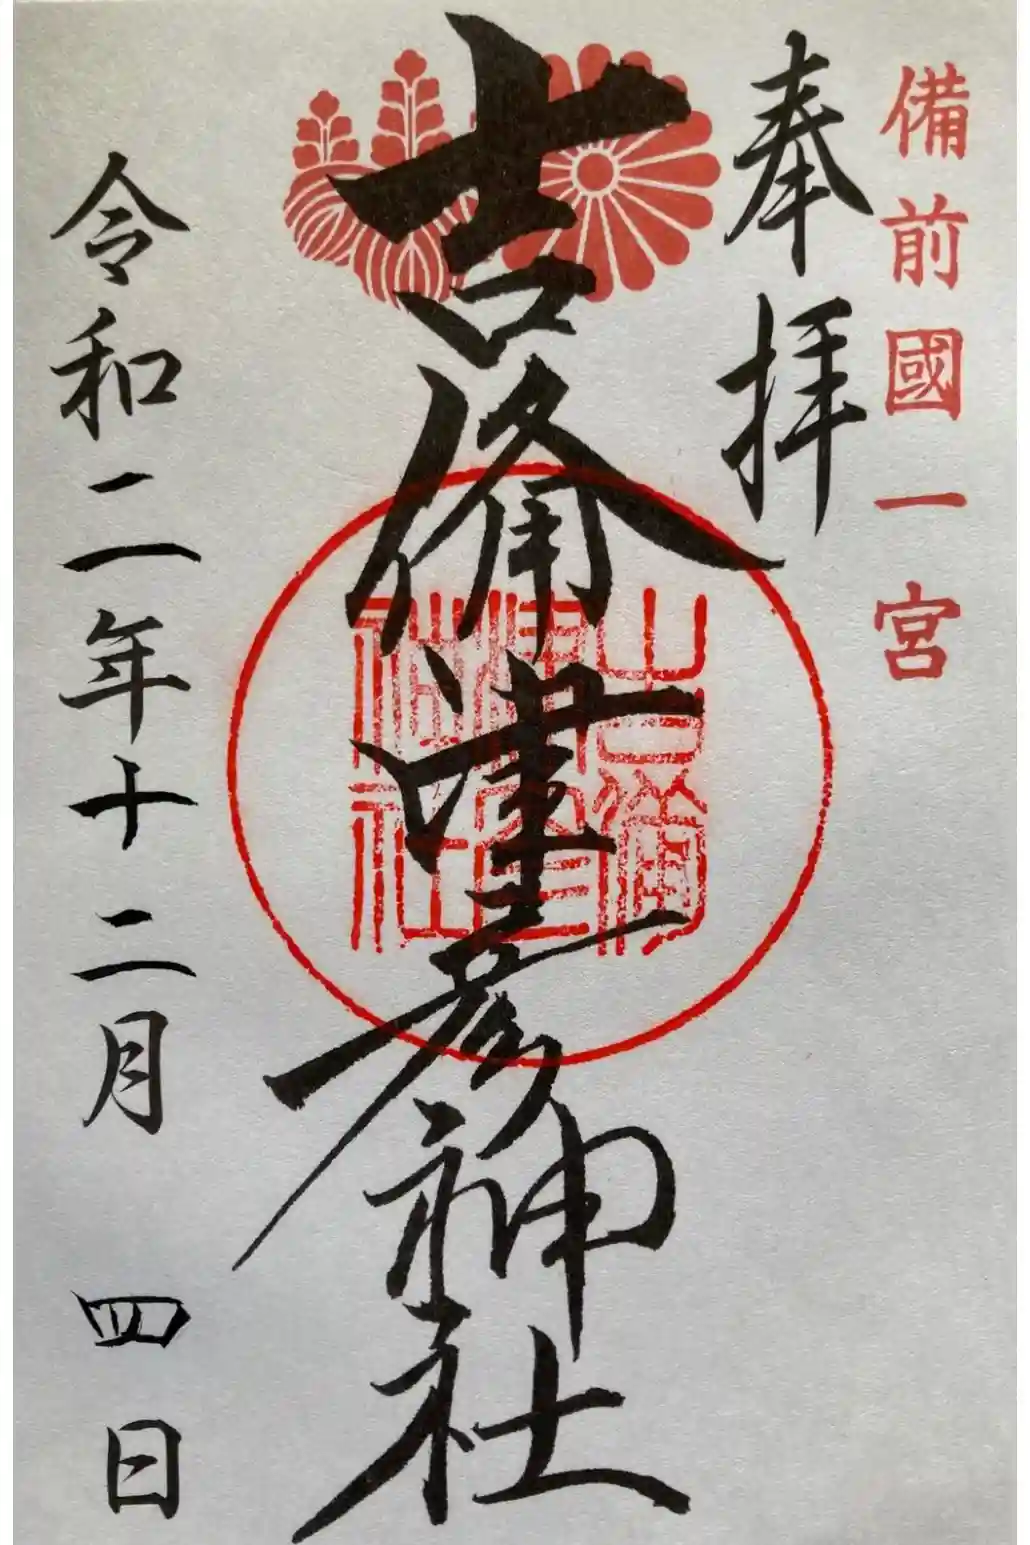 備前國一宮
奉拝
吉備津彦神社
吉備津彦神社
令和二年十二月四日